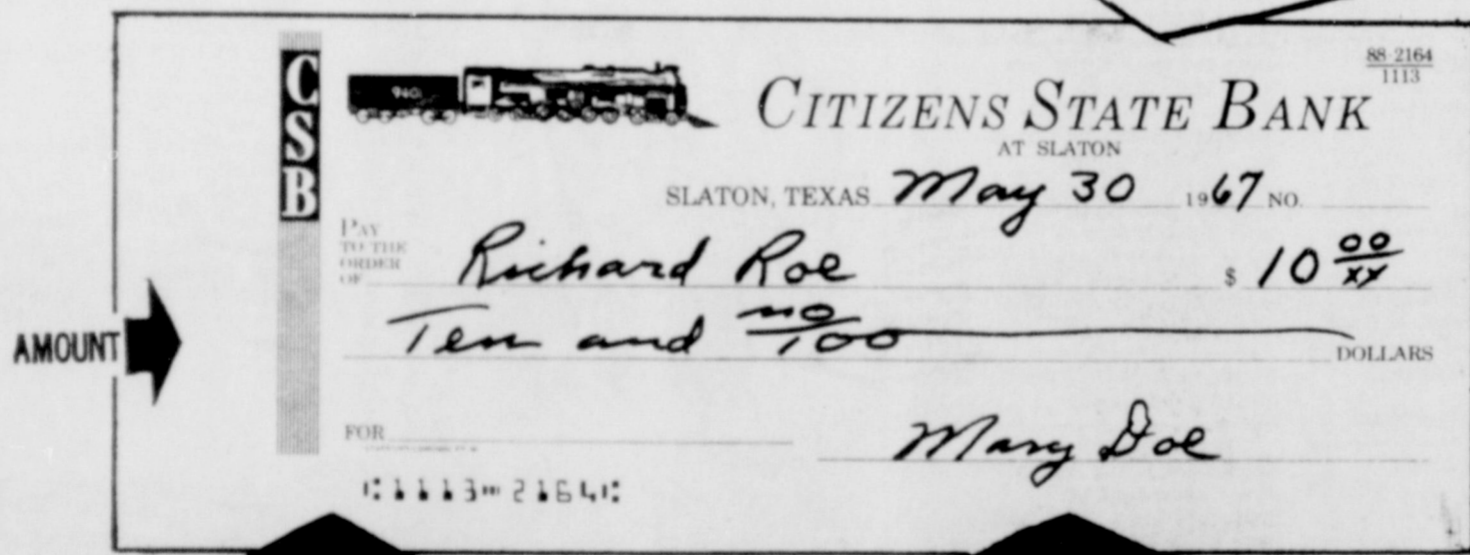 88-2164
1113
CSB
940
CITIZENS STATE BANK
AT SLATON
SLATON, TEXAS May 30 1967 NO.
PAY TO THE ORDER OF Richard Roe $ 10 00/xx
AMOUNT
Ten and no/100 DOLLARS
FOR Mary Doe
⑆1113⑉2164⑆